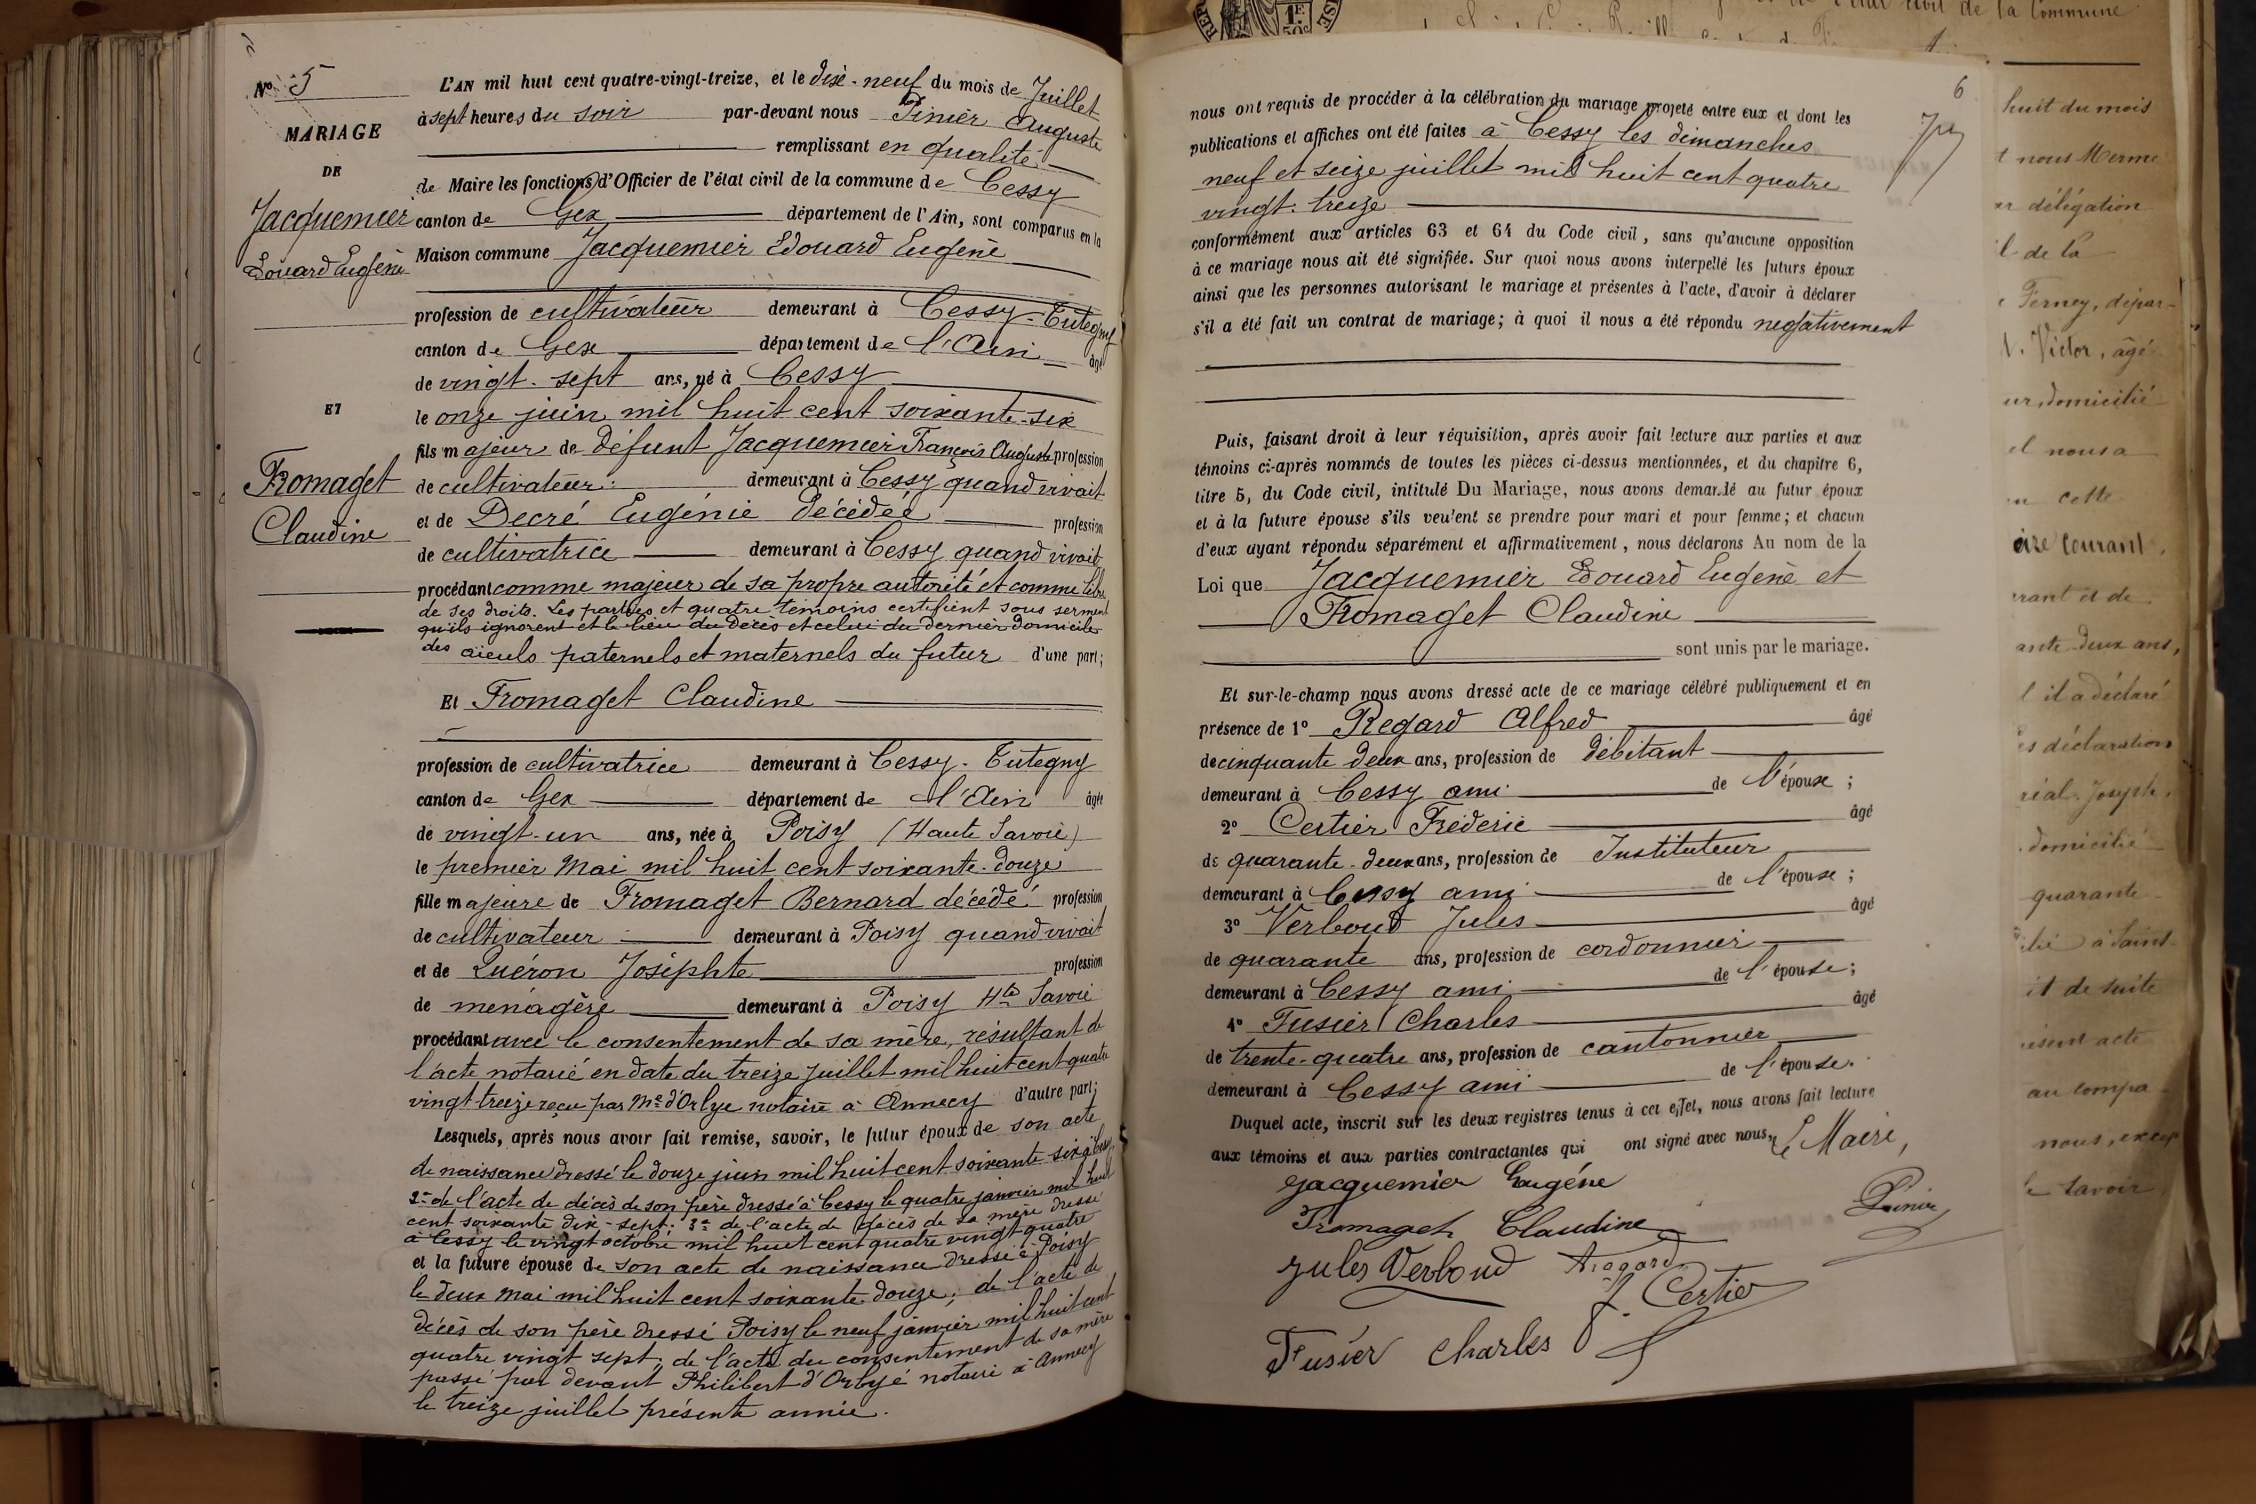 N° 5
MARIAGE
DE
Jacquemier
Edouard Eugène
ET
Fromaget
Claudine
L'AN mil huit cent quatre-vingt-treize, et le dix-neuf du mois de Juillet
à sept heures du soir par-devant nous Pinier Auguste
remplissant en qualité
de Maire les fonctions d'Officier de l'état civil de la commune de Cessy
canton de Gex département de l'Ain, sont comparus en la
Maison commune Jacquemier Edouard Eugène
profession de cultivateur demeurant à Cessy-Tutegny
canton de Gex département de l'Ain âgé
de vingt-sept ans, né à Cessy
le onze juin mil huit cent soixante-six
fils majeur de défunt Jacquemier François Auguste profession
de cultivateur demeurant à Cessy quand vivait
et de Decré Eugénie décédée profession
de cultivatrice demeurant à Cessy quand vivait
procédant comme majeur de sa propre autorité et comme libre
de ses droits. Les parties et quatre témoins certifient sous serment
qu'ils ignorent et le lieu du décès et celui du dernier domicile
des aïeuls paternels et maternels du futur d'une part;
Et Fromaget Claudine
profession de cultivatrice demeurant à Cessy-Tutegny
canton de Gex département de l'Ain âgée
de vingt-un ans, née à Poisy (Haute Savoie)
le premier Mai mil huit cent soixante-douze
fille majeure de Fromaget Bernard décédé profession
de cultivateur demeurant à Poisy quand vivait
et de Quéron Joséphte profession
de ménagère demeurant à Poisy Hte Savoie
procédant avec le consentement de sa mère, résultant de
l'acte notarié en date du treize juillet mil huit cent quatre
vingt treize reçu par Me d'Orlye notaire à Annecy d'autre part;
Lesquels, après nous avoir fait remise, savoir, le futur époux de son acte
de naissance dressé le douze juin mil huit cent soixante-six à Cessy
2° de l'acte de décès de son père dressé à Cessy le quatre janvier mil huit
cent soixante dix-sept; 3° de l'acte de décès de sa mère dressé
à Cessy le vingt octobre mil huit cent quatre vingt quatre
et la future épouse de son acte de naissance dressé à Poisy
le deux mai mil huit cent soixante douze; de l'acte de
décès de son père dressé Poisy le neuf janvier mil huit cent
quatre vingt sept, de l'acte du consentement de sa mère
passé par devant Philibert d'Orlyé notaire à Annecy
le treize juillet présente année.
6
nous ont requis de procéder à la célébration du mariage projeté entre eux et dont les
publications et affiches ont été faites à Cessy les dimanches
neuf et seize juillet mil huit cent quatre
vingt-treize
conformément aux articles 63 et 64 du Code civil, sans qu'aucune opposition
à ce mariage nous ait été signifiée. Sur quoi nous avons interpellé les futurs époux
ainsi que les personnes autorisant le mariage et présentes à l'acte, d'avoir à déclarer
s'il a été fait un contrat de mariage; à quoi il nous a été répondu négativement
Puis, faisant droit à leur réquisition, après avoir fait lecture aux parties et aux
témoins ci-après nommés de toutes les pièces ci-dessus mentionnées, et du chapitre 6,
titre 5, du Code civil, intitulé Du Mariage, nous avons demandé au futur époux
et à la future épouse s'ils veulent se prendre pour mari et pour femme; et chacun
d'eux ayant répondu séparément et affirmativement, nous déclarons Au nom de la
Loi que Jacquemier Edouard Eugène et
Fromaget Claudine
sont unis par le mariage.
Et sur-le-champ nous avons dressé acte de ce mariage célébré publiquement et en
présence de 1° Regard Alfred âgé
de cinquante deux ans, profession de débitant
demeurant à Cessy ami de l'épouse;
2° Certier Fréderic âgé
de quarante-deux ans, profession de Instituteur
demeurant à Cessy ami de l'épouse;
3° Verboud Jules âgé
de quarante ans, profession de cordonnier
demeurant à Cessy ami de l'épouse;
4° Fusier Charles âgé
de trente-quatre ans, profession de cantonnier
demeurant à Cessy ami de l'épouse.
Duquel acte, inscrit sur les deux registres tenus à cet effet, nous avons fait lecture
aux témoins et aux parties contractantes qui ont signé avec nous, Le Maire,
Jacquemier Eugéne
Fromaget Claudine
Pinier
Jules Verboud A. Regard
f. Certier
Fusier Charles
état civil de la Commune
huit du mois
nous Merme
délégation
de la
Ferney, dépar-
Victor, âgé
domicilié
nous a
cette
aire courant,
rant et de
ante-deux ans,
il a déclaré
es déclarations
réal Joseph,
domicilié
quarante
à Saint
it de suite
ésent acte
au compa
nous, excep
savoir